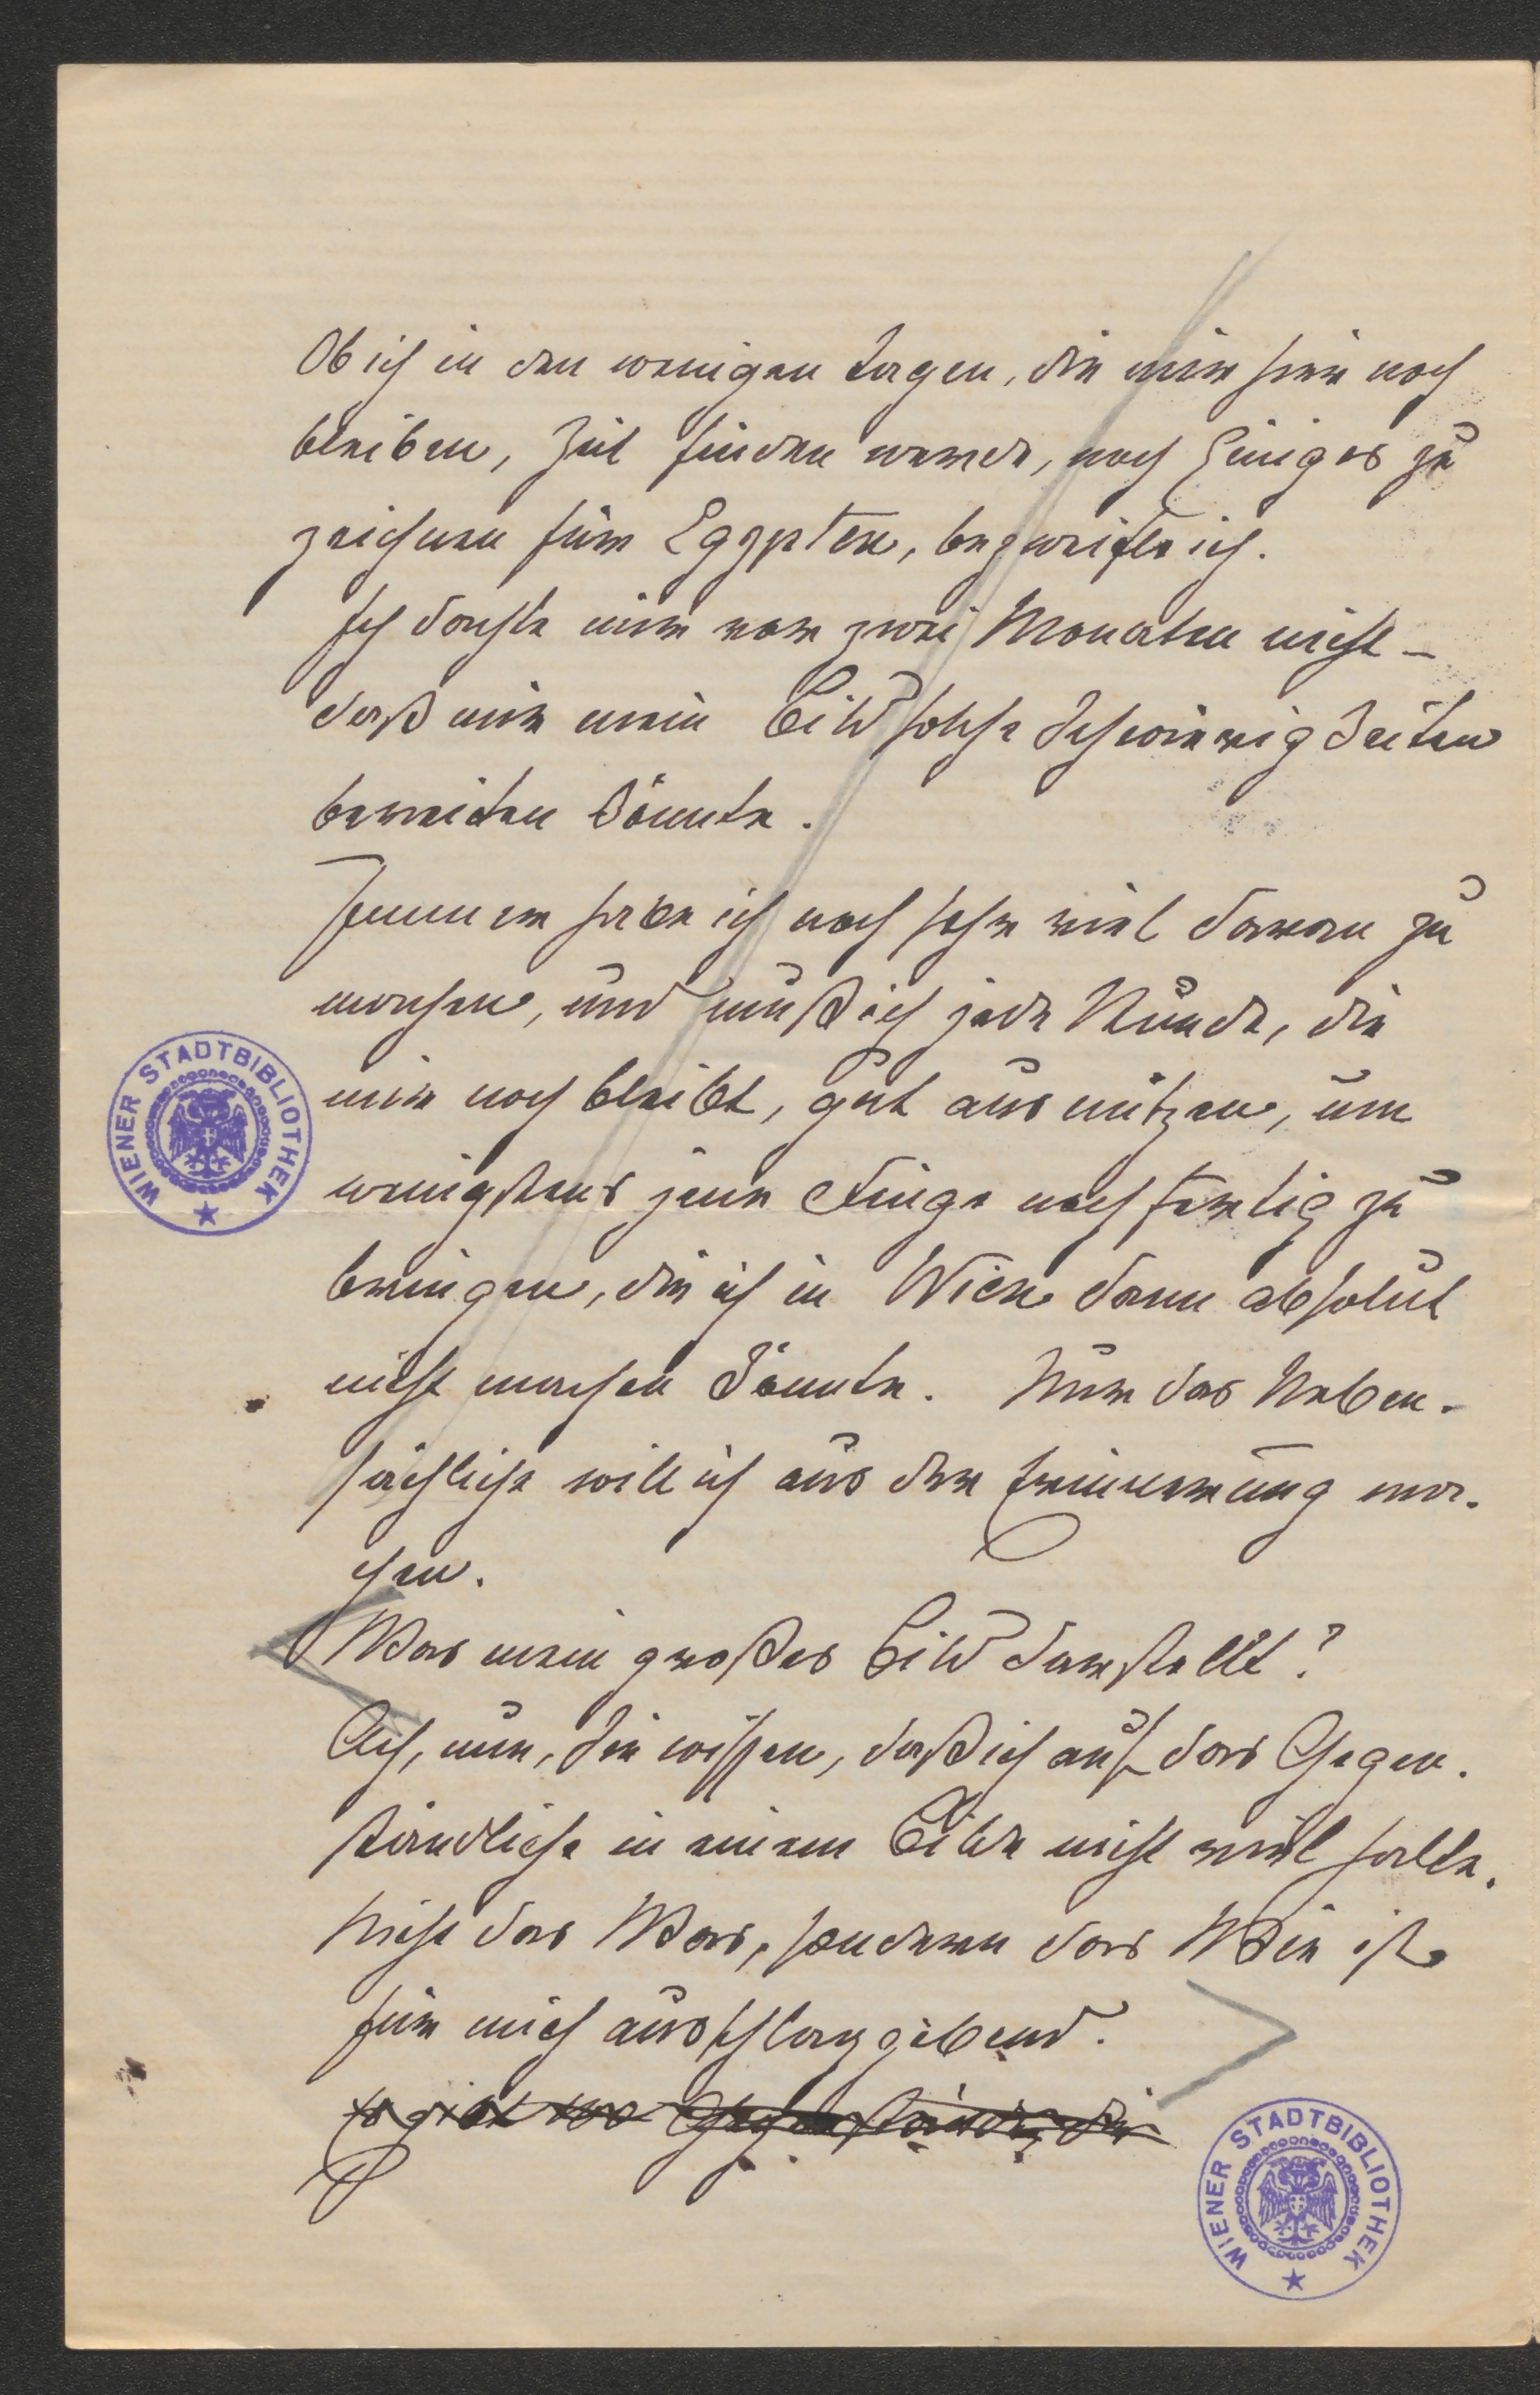 Ob ich in den wenigen Tagen, die mir hier noch
bleiben, Zeit finden werde, noch Einiges zu
zeichnen für Egypten, bezweifle ich.
Ich dachte mir vor zwei Monaten nicht –
daß mir mein Bild solche Schwierigkeiten
bereiten könnte.
Immer habe ich noch sehr viel daran zu
machen, und muß ich jede Stunde, die
mir noch bleibt, gut ausnützen, um
wenigstens jene Dinge noch fertig zu
bringen, die ich in Wien dann absolut
nicht machen könnte. Nur das Neben-
sächliche will ich aus der Erinnerung ma-
chen.
Was mein großes Bild darstellt?
Ach, nun, Sie wissen, daß ich auf das Gegen-
ständliche in einem Bilde nicht viel halte.
Nicht das Was, sondern das Wie ist
für mich ausschlaggebend.
Es gibt Gegenstände, die
WIENER STADTBIBLIOTHEK
WIENER STADTBIBLIOTHEK